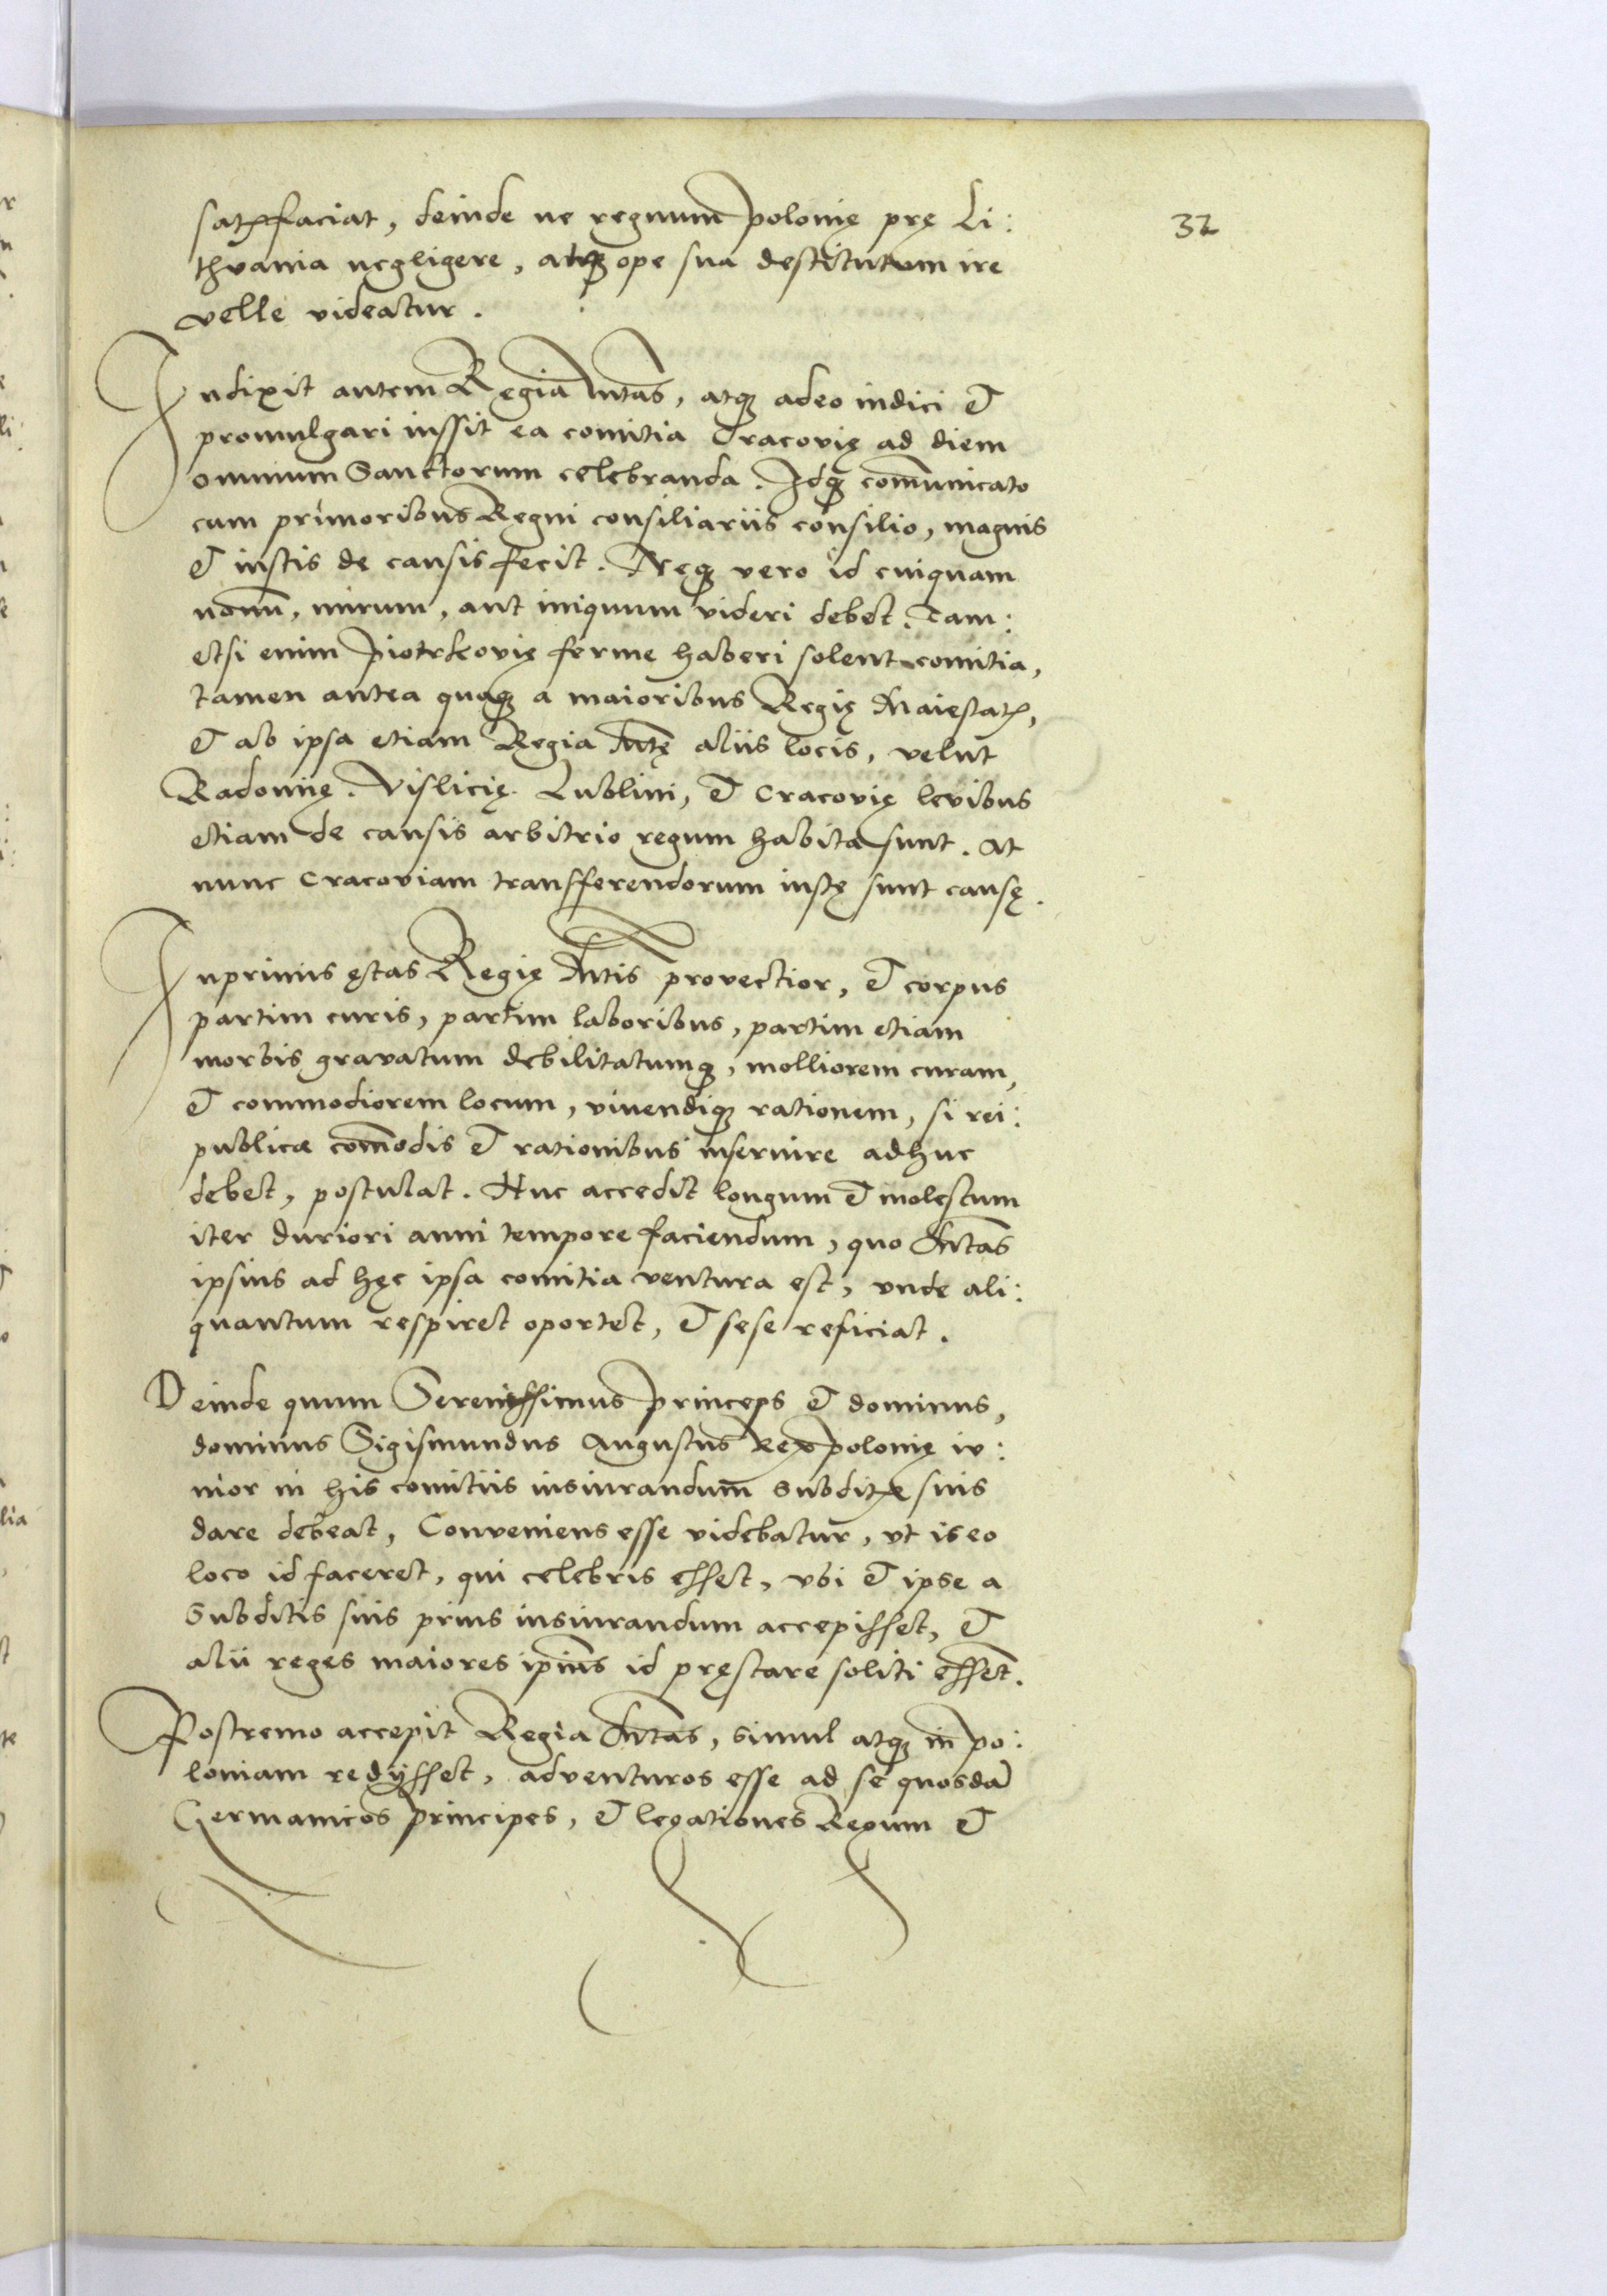 32
satisfaciat, deinde ne regnum Polonię prę Li:
thvania negligere, atq3 ope sua destitutum ire
velle videatur.
Indixit autem Regia Mtas, atq3 adeo indici et
promulgari iussit ea comitia Cracovię ad diem
omnium Sanctorum celebranda. Idq3 com̄unicato
cum primoribus Regni consiliariis consilio, magnis
et iustis de causis fecit. Neq3 vero id cuiquam
novum, mirum, aut iniquum videri debet. Tam:
etsi enim Piotrkovię ferme haberi solent comitia,
tamen antea quoq3 a maioribus Regię Maiestatis,
et ab ipsa etiam Regia Mtę aliis locis, velut
Radomię. Vislicię. Lublini, et Cracovię levibus
etiam de causis arbitrio regum habita sunt. At
nunc Cracoviam transfferendorum iustę sunt causę.
Inprimis ętas Regię Mtis provectior, et corpus
partim curis, partim laboribus, partim etiam
morbis gravatum debilitatumq3, molliorem curam,
et commodiorem locum, vivendiq3 rationem, si rei:
publicæ com̄odis et rationibus inservire adhuc
debet, postulat. Huc accedit longum et molestum
iter duriori anni tempore faciendum, quo Mtas
ipsius ad hęc ipsa comitia ventura est, unde ali:
quantum respiret oportet, et sese reficiat.
Deinde quum Serenissimus princeps et dominus,
dominus Sigismundus Augustus Rex Polonię iu:
nior in his comitiis iusiurandum subditis suis
dare debeat, Conveniens esse videbatur, ut is eo
loco id faceret, qui celebris esset, ubi et ipse a
Subditis suis prius iusiurandum accepisset, et
alii reges maiores ipsius id pręstare soliti essent.
Postremo accepit Regia Mtas, simul atq3 in Po:
loniam redijsset, adventuros esse ad se quosdā
Germanicos principes, et legationes Regum et